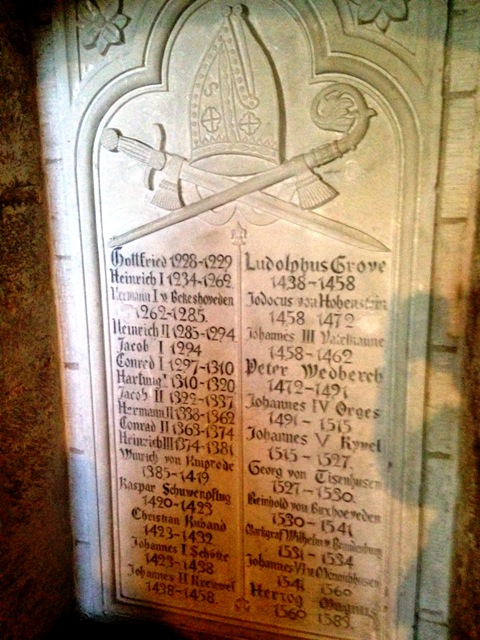 Gottfried 1228-1229
Heinrich I 1234-1262
Hermann I v Bekeshoveden
1262-1285.
Heinrich II 1285-1294
Jacob I 1294
Conred I 1297-1310
Hartung 1310-1320
Jacob II 1322-1337
Hermann II 1338-1362
Conrad II 1363-1374
Heinrich III 1374-1381
Winrich von Kniprode
1385-1419
Kaspar Schuwenpflug
1420-1423
Christian Kuband
1423-1432
Johannes I Schütte
1423-1438
Johannes II Kreuwel
1438-1458
Ludolphus Grove
1438-1458
Jodocus von Hohenstein
1458 1472
Johannes III Vatelkanne
1458-1462
Peter Wedberch
1472-1491
Johannes IV Orges
1491-1515
Johannes V Kyvel
1515-1527.
Georg von Tisenhusen
1527-1530.
Reinhold von Buxhoeveden
1530-1541
Markgraf Wilhelm v Brandenburg
1531-1534
Johannes VI v Mönnichhusen
1541 1560
Herzog Magnus
1560 1583.